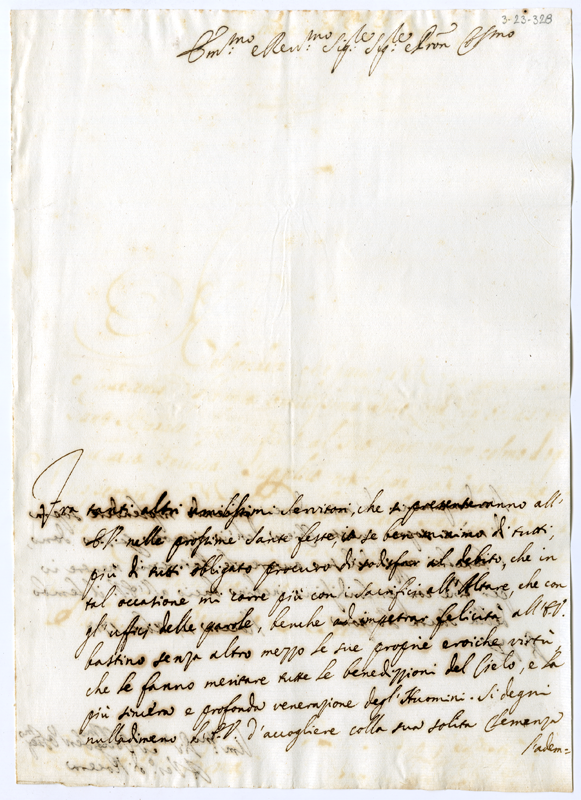 3-23-328
Em.mo e Rev.mo Sig.r Sig.r e Pron Col.mo
Fra tanti altri servitori, che si presenteranno all'
E.V. nelle prossime Sante feste, io se ben minimo di tutti,
più di tutti obligato procuro di sodisfar al debito, che in
tal occasione mi corre più con i sacrificij all'Altare, che con
gl'ufficij delle parole, benche ad impetrar felicità all'E.V.
bastino senza altro mezzo le sue proprie eroiche virtù
che le fanno meritare tutte le benedizzioni del Cielo, e la
più sincera e profonda venerazione degl'Huomini. Si degni
nulladimeno l'E.V. d'accogliere colla sua solita Clemenza
l'adem=